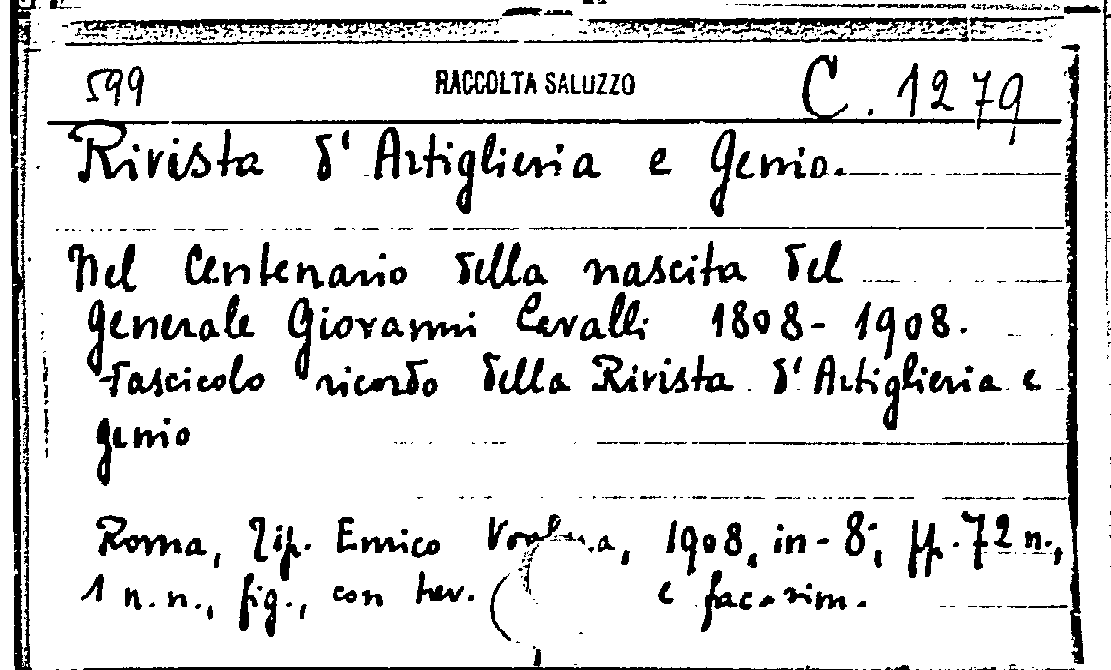 599 RACCOLTA SALUZZO C. 1279
Rivista d'Artiglieria e Genio.
Nel Centenario della nascita del
Generale Giovanni Cavalli 1808-1908.
Fascicolo ricordo della Rivista d'Artiglieria e
Genio
Roma, Tip. Enrico 1908, in-8°, pp. 72 n.,
1 n.n., fig., con tav. e fac-sim.